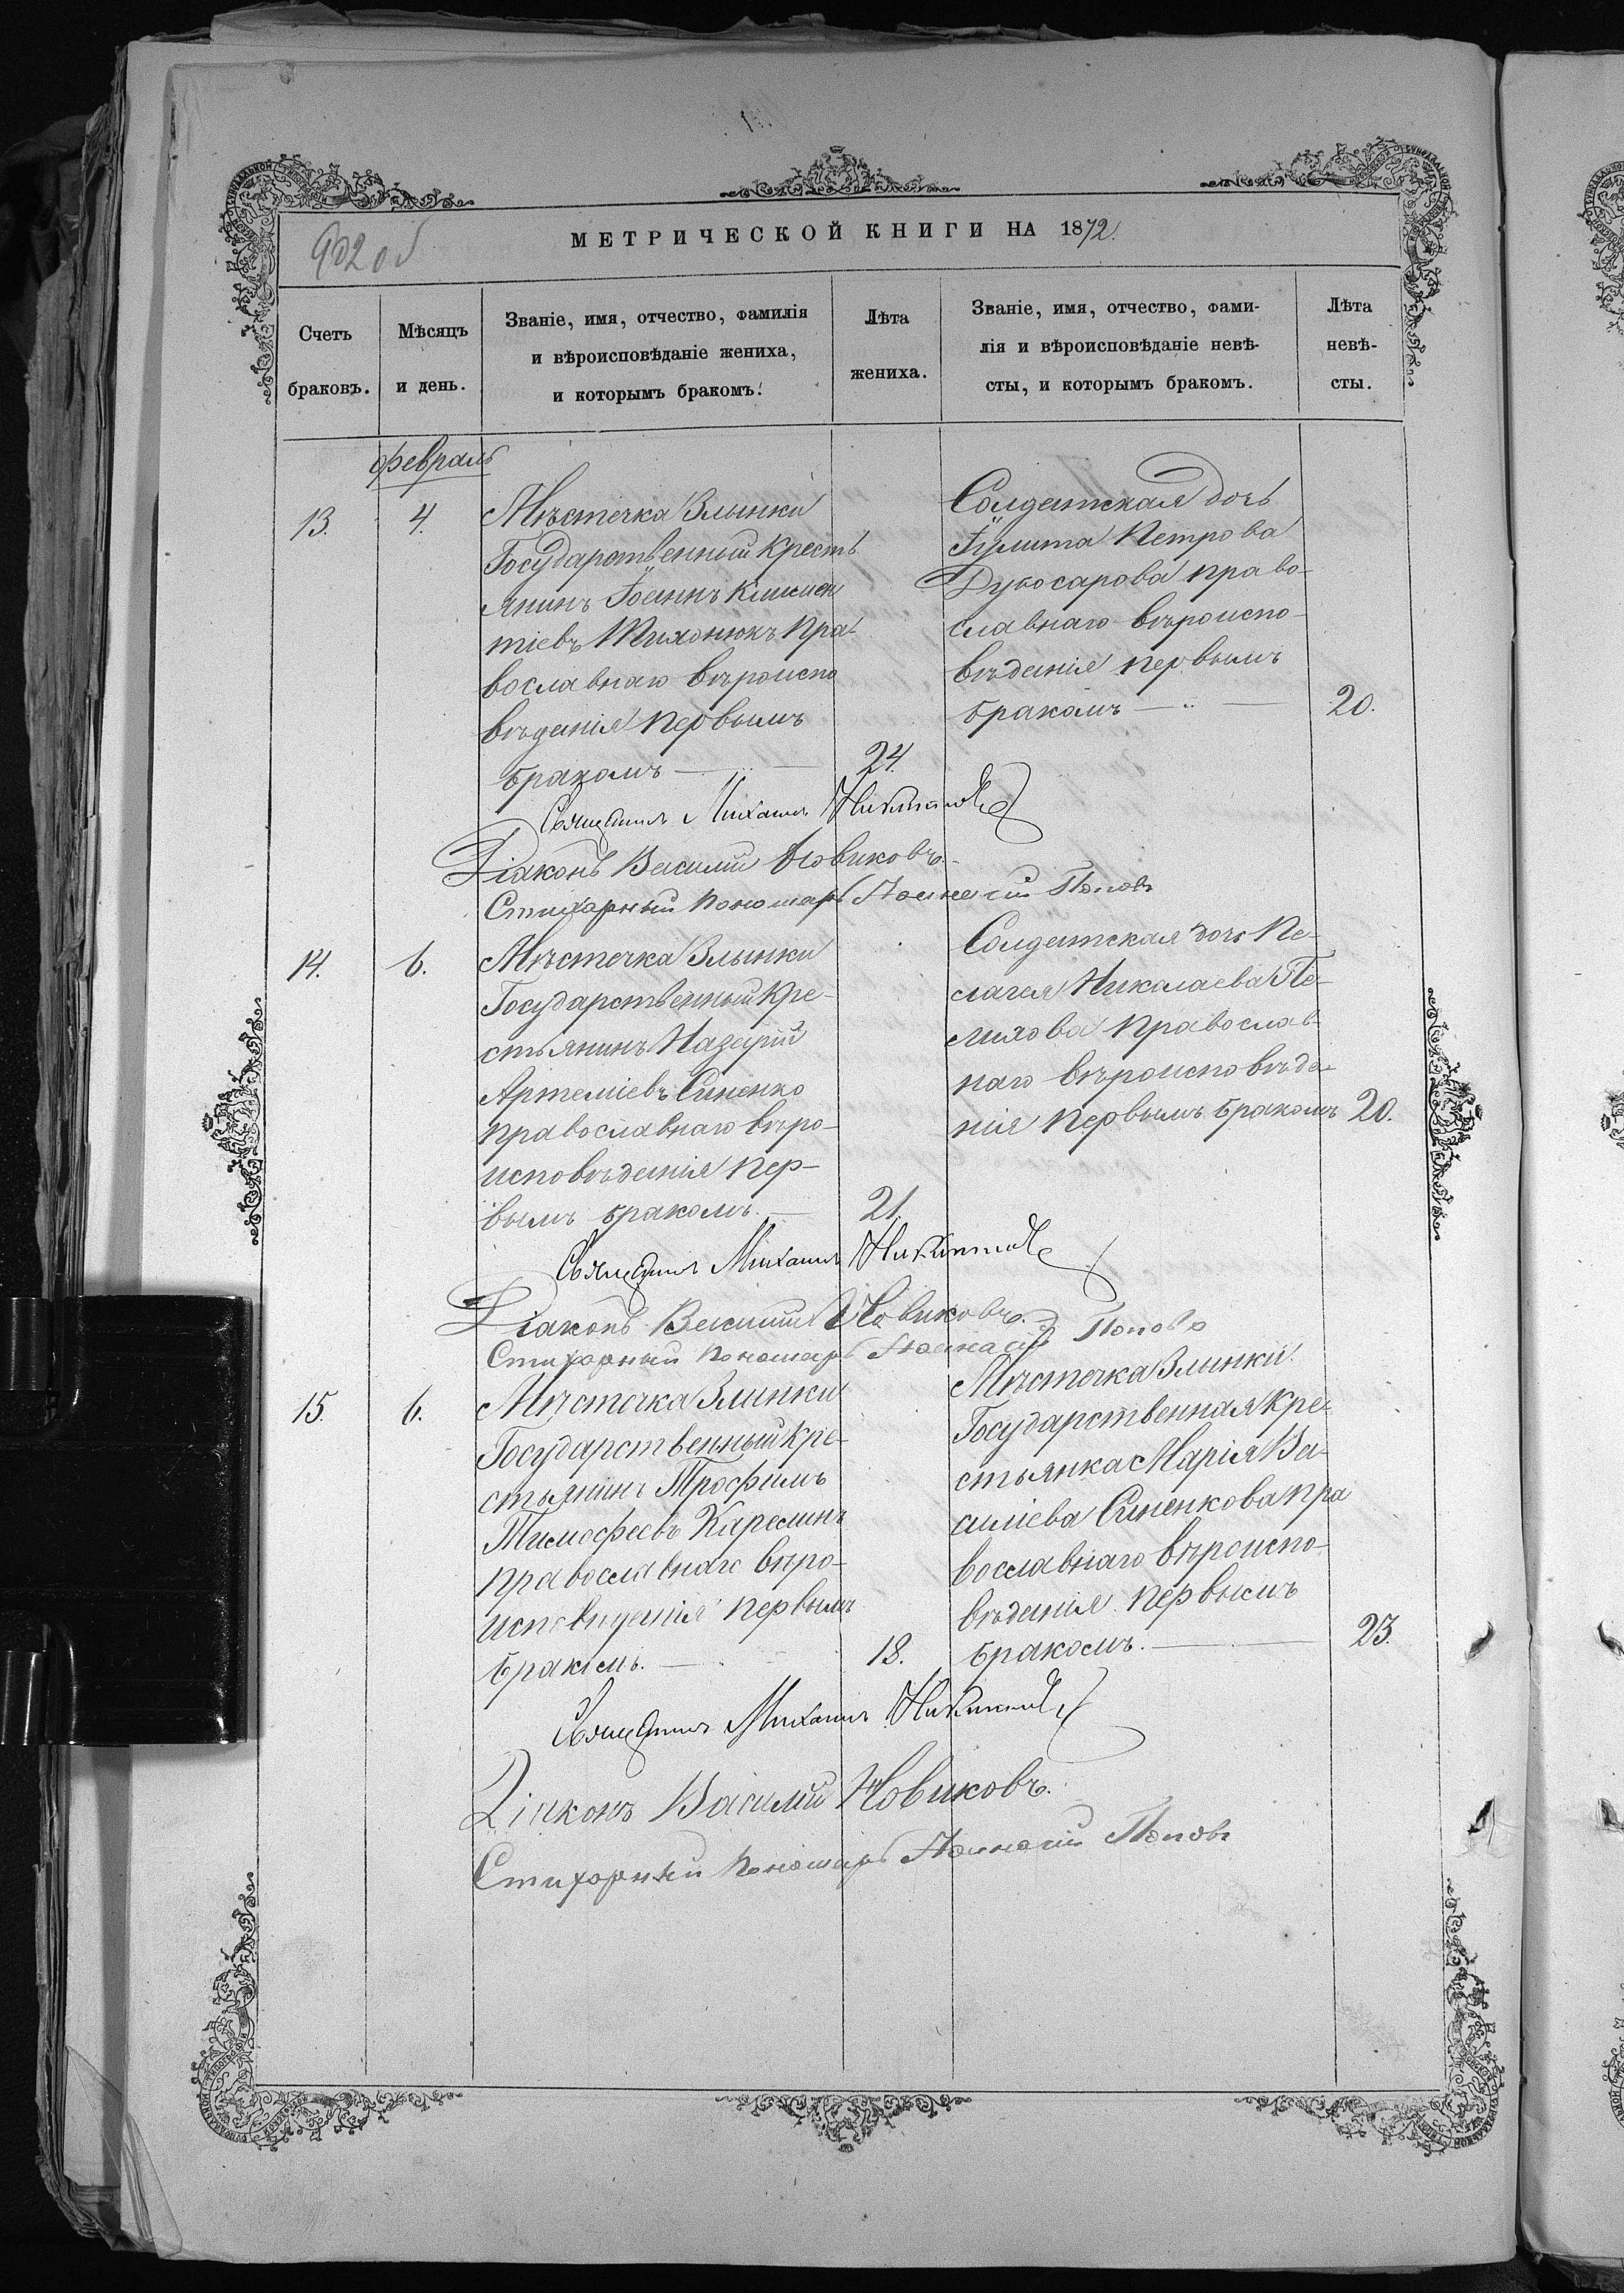 МЕТРИЧЕСКОЙ КНИГИ НА 1872.
Счетъ
браковъ.
Мѣсяцъ
и день.
Званіе, имя, отчество, фамилія
и вѣроисповѣданіе жениха,
и которымъ бракомъ.
Лѣта
жениха.
Званіе, имя, отчество, фами-
лія и вѣроисповѣданіе невѣ-
сты, и которымъ бракомъ.
Лѣта
невѣ-
сты.
Февраль
13.
4.
Мѣстечка Злынки
Государственный кресть
янинъ Іоаннъ Климен
тіевъ Тихонюкъ пра-
вославнаго вѣроиспо
вѣданія первымъ
бракомъ
24.
Солдатская дочь
Іулита Петрова
Дубосарова право-
славнаго вѣроиспо-
вѣданія первымъ
бракомъ
20.
Священникъ Михаилъ
Діаконъ Василій Новиковъ.
Стихарный пономарь Поповъ
14.
6.
Мѣстечка Злынки
Государственный кре-
стьянинъ Назарій
Артеміевъ Синенко
православнаго вѣро-
исповѣданія пер-
вымъ бракомъ.
21.
Солдатская дочь Пе-
лагея Николаева Пе-
лихова православ-
наго вѣроисповѣда-
нія первымъ бракомъ
20.
Священникъ Михаилъ
Діаконъ Василій Новиковъ.
Стихарный пономарь Поповъ
15.
6.
Мѣстечка Злинки
Государственный кре-
стьянинъ Трофимъ
Тимофеевъ Карасинъ
православнаго вѣро-
исповѣданія первымъ
бракомъ.
18.
Мѣстечка Злинки
Государственная кре-
стьянка Марія Ва-
силіева Синенкова пра
вославнаго вѣроиспо-
вѣданія первымъ
бракомъ.
23.
Священникъ Михаилъ
Діаконъ Василій Новиковъ.
Стихарный пономарь Поповъ